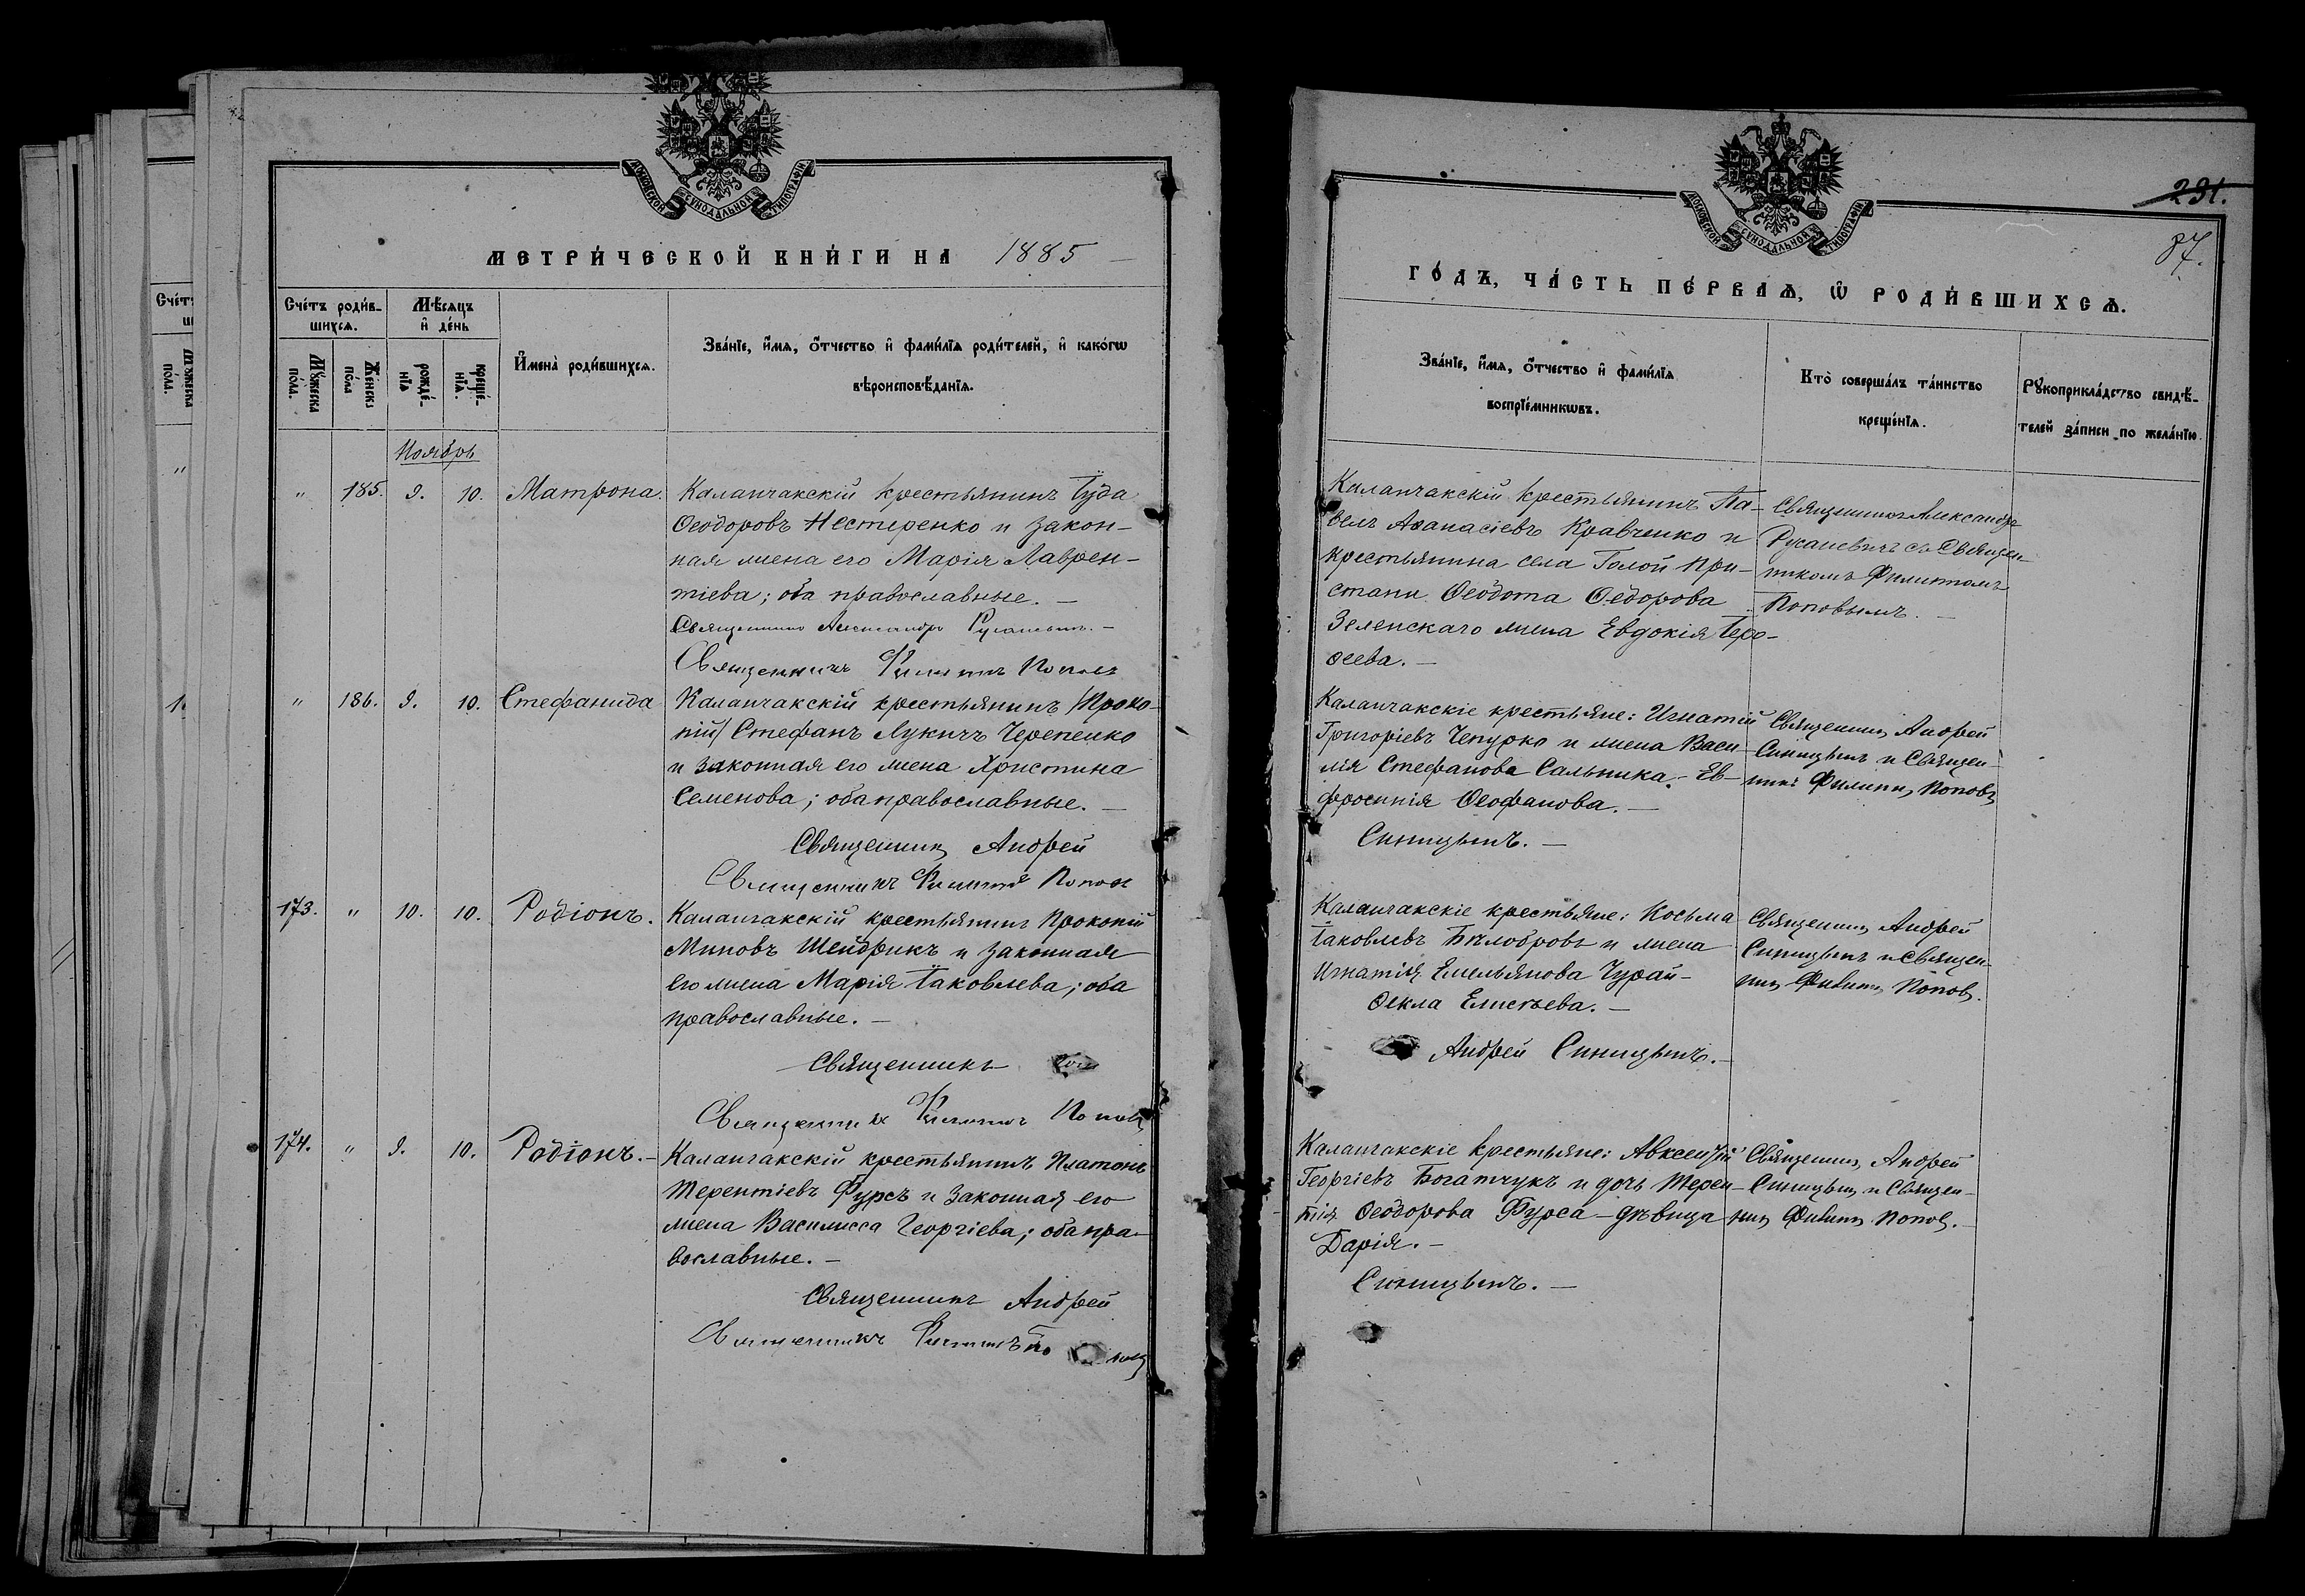 МОСКОВСКОЙ СѴНОДАЛЬНОЙ ТИПОГРАФІИ
МЕТРИ́ЧЕСКОЙ КНИ́ГИ НА 1885
Сче́тъ роди́в-
шихся.
Мѣ́сяцъ
и҆ де́нь
Мꙋ́жеска
по́ла.
Же́нска
по́ла
рожде́-
нїѧ
креще́-
нїѧ.
И҆мена̀ роди́вшихсѧ.
Зва́нїе, и҆́мѧ, ѻ҆́тчество и҆ фами́лїѧ роди́телей, и҆ како́гѡ
вѣроисповѣ́данїѧ.
Ноябрь
" 185. 9. 10. Матрона.
Каланчакскій крестьянинъ Іуда
Ѳеодоровъ Нестеренко и закон-
ная жена его Марія Лаврен-
тіева; оба православные. —
Священникъ Александръ Русаневичъ. —
Священникъ Филиппъ Поповъ
" 186. 9. 10. Стефанида
Каланчакскій крестьянинъ /Проко-
пій/ Стефанъ Лукичъ Черепенко
и законная его жена Христина
Семенова; оба православные. —
Священникъ Андрей
Священникъ Филиппъ Поповъ
173. " 10. 10. Родіонъ.
Каланчакскій крестьянинъ Прокопій
Миновъ Шендрикъ и законная
его жена Марія Іаковлева; оба
православные. —
Священникъ
Священникъ Филиппъ Поповъ
174. " 9. 10. Родіонъ. —
Каланчакскій крестьянинъ Платонъ
Терентіевъ Фурсъ и законная его
жена Василисса Георгіева; оба пра-
вославные. —
Священникъ Андрей
Священникъ Филиппъ По повъ
МОСКОВСКОЙ СѴНОДАЛЬНОЙ ТИПОГРАФІИ
231.
87.
ГО́ДЪ, ЧА́СТЬ ПЕ́РВАѦ, Ѽ РОДИ́ВШИХСѦ.
Зва́нїе, и҆́мѧ, ѻ҆́тчество и҆ фами́лїѧ
воспрїе́мникѡвъ.
Кто̀ соверша́лъ та́инство
креще́нїѧ.
Рꙋкоприкла́дство свидѣ́-
телей за́писи по жела́нїю.
Каланчакскій крестьянинъ Па-
велъ Аѳанасіевъ Кравченко и
крестьянина села Голой При-
стани Ѳеодота Ѳедорова
Зеленскаго жена Евдокія Іеро-
ѳеева. —
Священникъ Александръ
Русаневичъ съ Священ-
никомъ Филиппомъ
Поповымъ. —
Каланчакскіе крестьяне: Игнатій
Григоріевъ Чепурко и жена Васи-
лія Стефанова Сальника. - Ев-
фросинія Ѳеофанова. —
Синицынъ. —
Священникъ Андрей
Синицынъ и Священ-
никъ Филиппъ Поповъ
Каланчакскіе крестьяне: Косьма
Іаковлевъ Бѣлобровъ и жена
Игнатія Емельянова Чурай-
Ѳекла Елисѣева. —
Андрей Синицынъ. —
Священникъ Андрей
Синицынъ и Священ-
никъ Филиппъ Поповъ.
Каланчакскіе крестьяне: Авксентій
Георгіевъ Богатчукъ и дочь Терен-
тія Ѳеодорова Фурса - дѣвица
Дарія. —
Синицынъ. —
Священникъ Андрей
Синицынъ и Священ-
никъ Филиппъ Поповъ. —